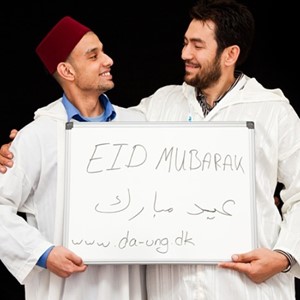 EID MUBARAK
عيد مبارك
www.da-ung.dk